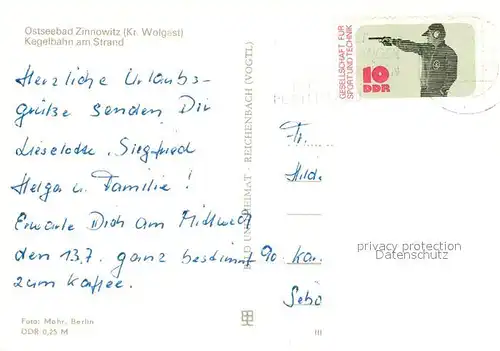 Ostseebad Zinnowitz (Kr. Wolgast)
Kegelbahn am Strand
Herzliche Urlaubs-
grüße senden Dir
Lieselotte, Siegfried
Helga u. Familie!
Erwarte Dich am Mittwoch
den 13.7. ganz bestimmt
zum Kaffee.
Foto: Mohr, Berlin
DDR 0,25 M
BILD UND HEIMAT · REICHENBACH (VOGTL)
GESELLSCHAFT FÜR
SPORT UND TECHNIK
10
DDR
Fr.
Hilde
90 Kar
Sebn
III
privacy protection
Datenschutz